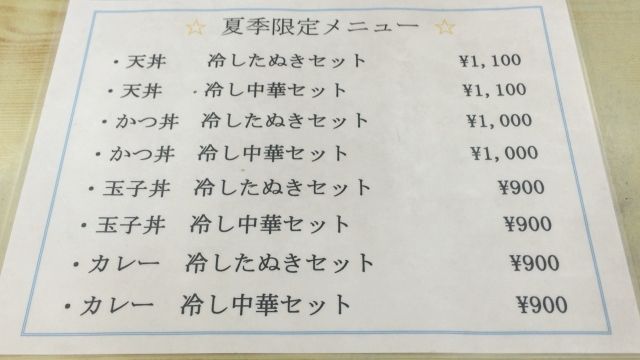 ☆ 夏季限定メニュー ☆
・天丼　冷したぬきセット　¥1,100
・天丼　冷し中華セット　¥1,100
・かつ丼　冷したぬきセット　¥1,000
・かつ丼　冷し中華セット　¥1,000
・玉子丼　冷したぬきセット　¥900
・玉子丼　冷し中華セット　¥900
・カレー　冷したぬきセット　¥900
・カレー　冷し中華セット　¥900